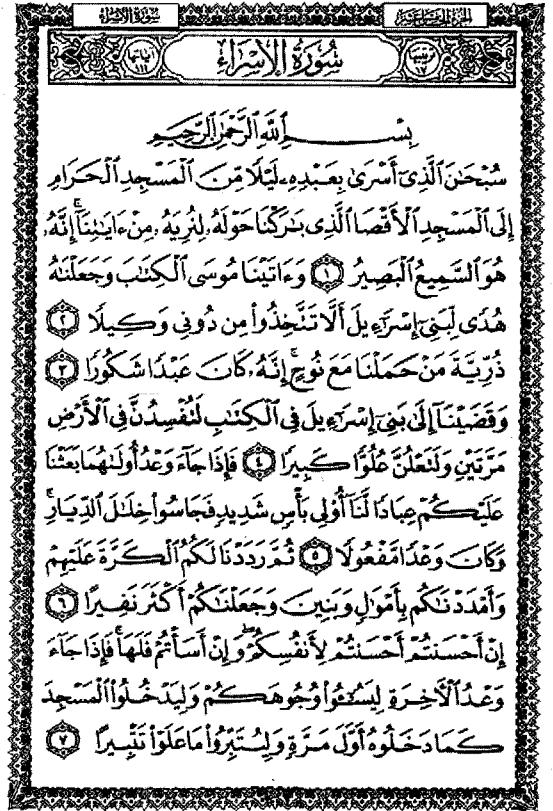 سُورَةُ الإِسْرَاءِ
الجُزْءُ الخَامِسَ عَشَرَ
آيَاتُهَا ١١١
سُورَةُ الإِسْرَاءِ
تَرْتِيبُهَا ١٧
بِسْمِ ٱللَّهِ ٱلرَّحْمَٰنِ ٱلرَّحِيمِ
سُبْحَٰنَ ٱلَّذِىٓ أَسْرَىٰ بِعَبْدِهِۦ لَيْلًا مِّنَ ٱلْمَسْجِدِ ٱلْحَرَامِ
إِلَى ٱلْمَسْجِدِ ٱلْأَقْصَا ٱلَّذِى بَٰرَكْنَا حَوْلَهُۥ لِنُرِيَهُۥ مِنْ ءَايَٰتِنَآ ۚ إِنَّهُۥ
هُوَ ٱلسَّمِيعُ ٱلْبَصِيرُ ١ وَءَاتَيْنَا مُوسَى ٱلْكِتَٰبَ وَجَعَلْنَٰهُ
هُدًى لِّبَنِىٓ إِسْرَٰٓءِيلَ أَلَّا تَتَّخِذُوا۟ مِن دُونِى وَكِيلًا ٢
ذُرِّيَّةَ مَنْ حَمَلْنَا مَعَ نُوحٍ ۚ إِنَّهُۥ كَانَ عَبْدًا شَكُورًا ٣
وَقَضَيْنَآ إِلَىٰ بَنِىٓ إِسْرَٰٓءِيلَ فِى ٱلْكِتَٰبِ لَتُفْسِدُنَّ فِى ٱلْأَرْضِ
مَرَّتَيْنِ وَلَتَعْلُنَّ عُلُوًّا كَبِيرًا ٤ فَإِذَا جَآءَ وَعْدُ أُولَىٰهُمَا بَعَثْنَا
عَلَيْكُمْ عِبَادًا لَّنَآ أُو۟لِى بَأْسٍ شَدِيدٍ فَجَاسُوا۟ خِلَٰلَ ٱلدِّيَارِ ۚ
وَكَانَ وَعْدًا مَّفْعُولًا ٥ ثُمَّ رَدَدْنَا لَكُمُ ٱلْكَرَّةَ عَلَيْهِمْ
وَأَمْدَدْنَٰكُم بِأَمْوَٰلٍ وَبَنِينَ وَجَعَلْنَٰكُمْ أَكْثَرَ نَفِيرًا ٦
إِنْ أَحْسَنتُمْ أَحْسَنتُمْ لِأَنفُسِكُمْ ۖ وَإِنْ أَسَأْتُمْ فَلَهَا ۚ فَإِذَا جَآءَ
وَعْدُ ٱلْـَٔاخِرَةِ لِيَسُـۥٓـُٔوا۟ وُجُوهَكُمْ وَلِيَدْخُلُوا۟ ٱلْمَسْجِدَ
كَمَا دَخَلُوهُ أَوَّلَ مَرَّةٍ وَلِيُتَبِّرُوا۟ مَا عَلَوْا۟ تَتْبِيرًا ٧